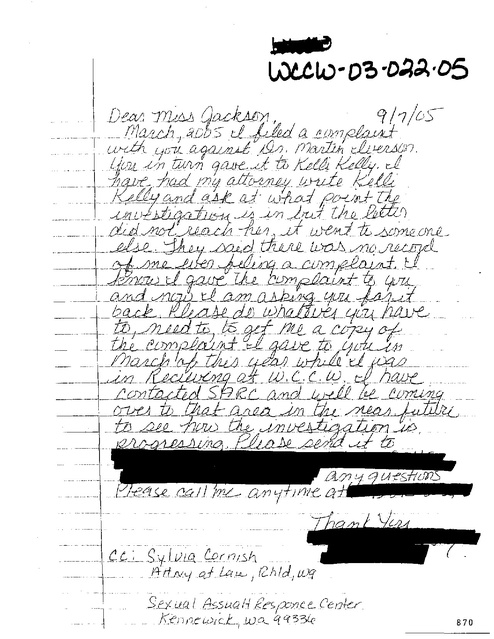 WCCW-03-022-05
Dear Miss Jackson, 9/7/05
March, 2005 I filed a complaint
with you against Dr. Martin Iverson.
You in turn gave it to Kelli Kelly. I
have had my attorney write Kelli
Kelly and ask at what point the
investigation is in but the letter
did not reach her, it went to someone
else. They said there was no record
of me ever filing a complaint. I
know I gave the complaint to you
and now I am asking you for it
back. Please do whatever you have
to, need to, to get me a copy of
the complaint I gave to you in
March of this year while I was
in Reciving at W.C.C.W. I have
contacted SARC and will be coming
over to that area in the near future
to see how the investigation is
progressing. Please send it to
any questions
Please call me anytime at
Thank You
cc: Sylvia Cornish
Attny at Law, Rchld, wa
Sexual Assualt Responce Center
Kennewick, wa 99336
870